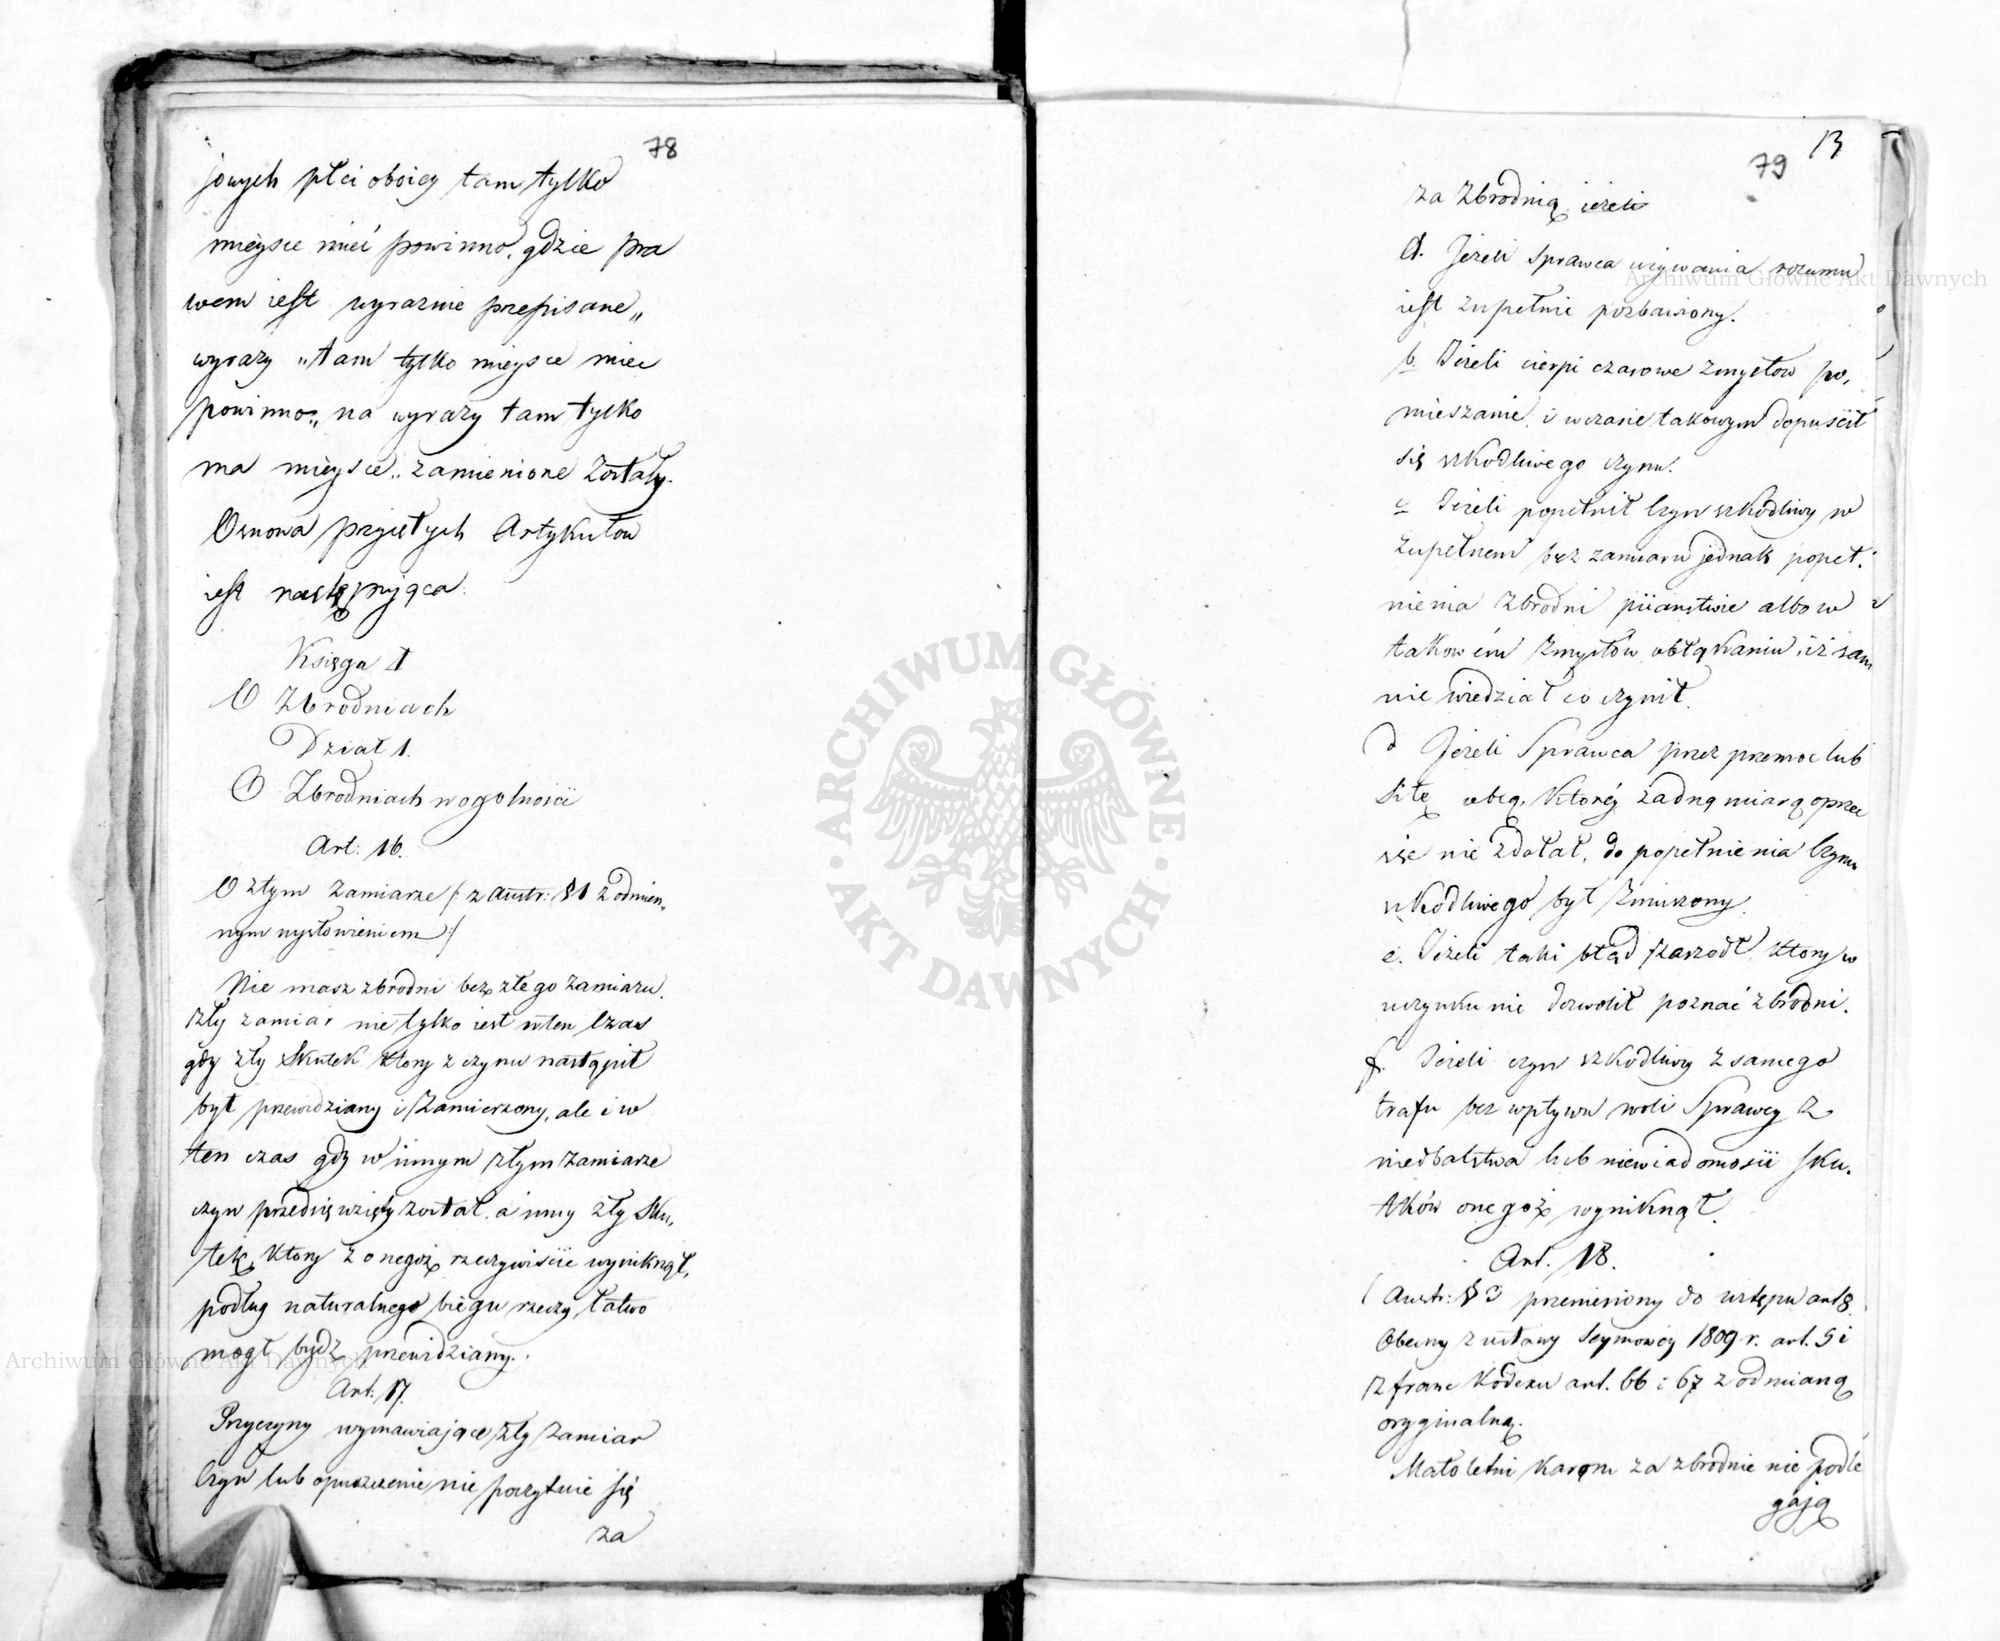 78
jowych płci oboiey tam tylko
mieysce mieć powinno, gdzie pra
wem iest wyraznie przepisane„
wyrazy „tam tylko mieysce miec
powinno„ na wyrazy tam tylko
ma mieysce„ zamienione zostały.
Osnowa przyiętych Artykułow
iest następująca:
Księga I
O Zbrodniach
Dział 1.
O Zbrodniach w ogolności
Art: 16.
O złym zamiarze /: z Austr: § 1 z odmien„
nym wysłowieniem :/
Nie masz zbrodni bez złego zamiaru.
Zły zamiar nie tylko iest w ten czas
gdy zły skutek ktory z czynu nastąpił
był przewidziany i zamierzony, ale i w
ten czas gdy w innym złym zamiarze
czyn przedsięwzięty został, a inny zły sku„
tek, ktory z onegoż rzeczywiście wyniknął,
podług naturalnego biegu rzeczy łatwo
mogł bydź przewidziany.
Art. 17.
Przyczyny wymawiające zły zamiar
Czyn lub opuszczenie nie poczytuie się
za
79 13
za Zbrodnią ieżeli
a. Jeżeli Sprawca używania rozumu
iest zupełnie pozbawiony.
b. Jeżeli cierpi czasowe zmysłow po„
mieszanie, i w czasie takowym dopuścił
się szkodliwego czynu.
c Jeżeli popełnił czyn szkodliwy w
zupełnem bez zamiaru jednak popeł„
nienia zbrodni piiaństwie albo w
takowém zmysłów obłąkaniu, iż sam
nie wiedział co czynił.
d Jeżeli Sprawca przez przemoc lub
siłę obcą, ktoréy żadną miarą oprzeć
się nie zdołał, do popełnienia czynu
szkodliwego był zmuszony.
e. Jeżeli taki błąd zaszedł, ktory w
uczynku nie dozwolił poznać zbrodni.
f. Jeżeli czyn szkodliwy z samego
trafu bez wpływu woli Sprawcy z
niedbalstwa lub niewiadomości sku„
tków onegoż wyniknął.
Art. 18.
( Austr: § 3 przeniesiony do wstępu art 8
Obecny z ustawy Seymowey 1809 r. art. 5 i
z franc Kodexu art. 66 i 67 z odmianą
oryginalną.
Małoletni karom za zbrodnie nie podle
gają
ARCHIWUM GŁÓWNE · AKT DAWNYCH ·
Archiwum Główne Akt Dawnych
Archiwum Główne Akt Dawnych